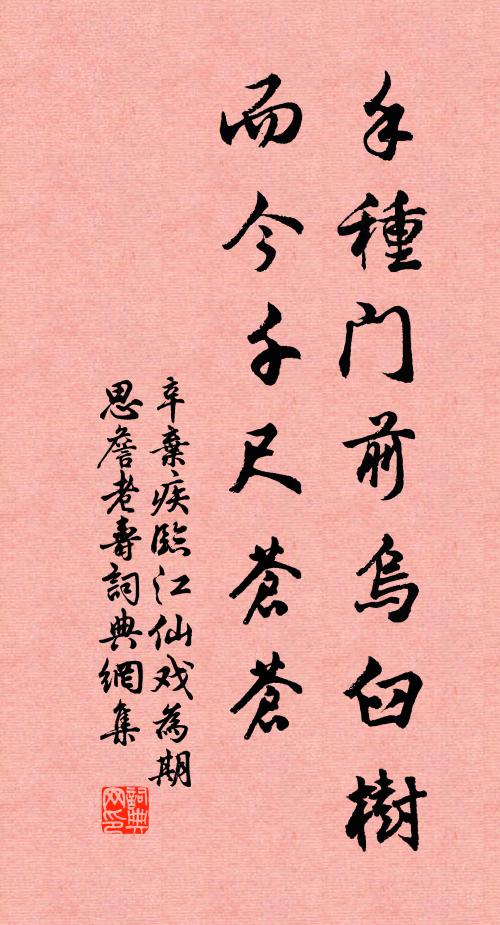 手種門前烏臼樹
而今千尺蒼蒼
辛棄疾臨江仙戏為期
思詹老壽詞典網集
詞典
网印